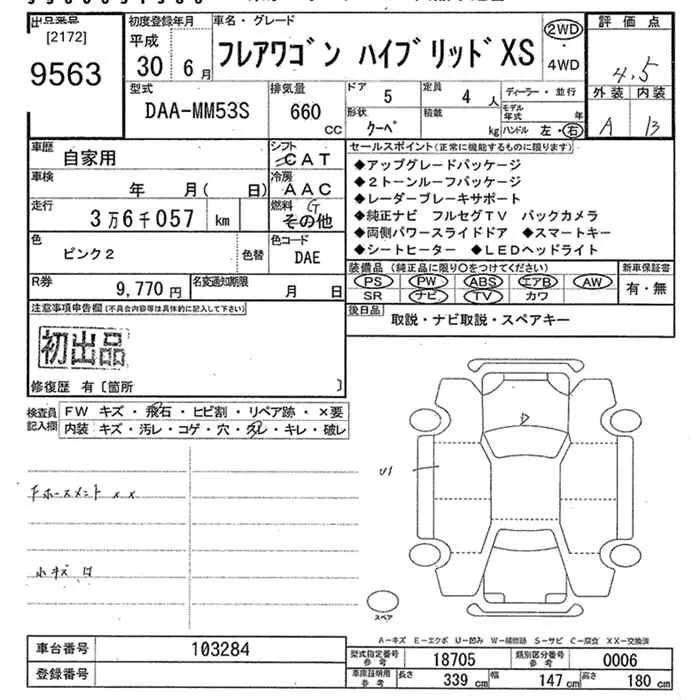 出品番号
[2172]
9563
初度登録年月
平成
30 6月
車名・グレード
フレアワゴン ハイブリッドXS
2WD
・
4WD
評価点
4.5
外装 内装
A B
型式
DAA-MM53S
排気量
660
CC
ドア
5
定員
4 人
形状
クーペ
積載
kg
ディーラー・並行
モデル年式
年
ハンドル 左・右
車歴
自家用
シフト
CAT
車検
年 月( 日)
冷房
AAC
走行
3万6千057 km
燃料 G
その他
色
ピンク2
色替
色コード
DAE
R券
9,770 円
名変通知期限
月 日
セールスポイント(正常に機能するものに限ります)
◆アップグレードパッケージ
◆2トーンルーフパッケージ
◆レーダーブレーキサポート
◆純正ナビ フルセグTV バックカメラ
◆両側パワースライドドア ◆スマートキー
◆シートヒーター ◆LEDヘッドライト
装備品(純正品に限り○をつけてください)
PS PW ABS エアB AW
SR ナビ TV カワ
新車保証書
有・無
後日品
取説・ナビ取説・スペアキー
注意事項申告欄(不具合内容等は具体的に記入して下さい)
初出品
修復歴 有〔箇所 〕
検査員
記入欄
FW キズ・飛石・ヒビ割・リペア跡・×要
内装 キズ・汚レ・コゲ・穴・スレ・キレ・破レ
××
小キズ
U1
スペア
A-キズ E-エクボ U-凹み W-補修跡 S-サビ C-腐食 XX-交換済
車台番号
103284
登録番号
型式指定番号
参考
18705
類別区分番号
参考
0006
車庫証明用
参考
長さ
339 cm
幅
147 cm
高さ
180 cm